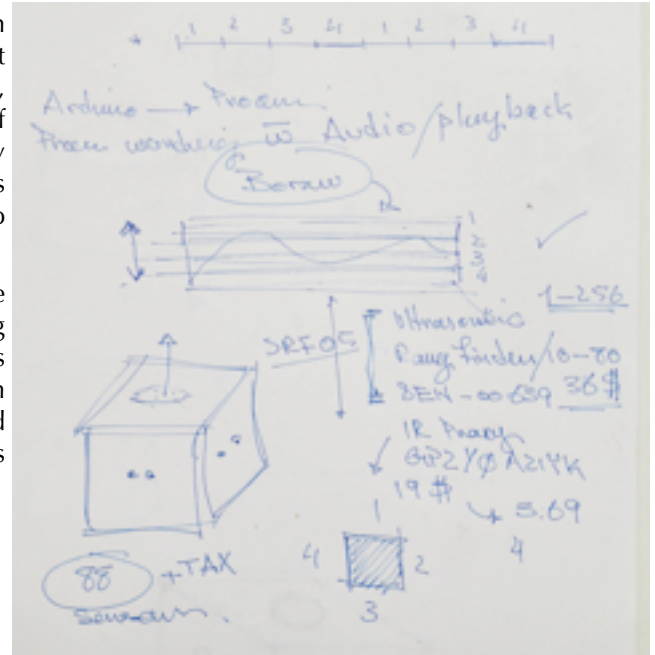 1 2 3 4 1 2 3 4
Arduino → Procem.
Procem working w̅ Audio/playback
1
2
3
4
1-256
SRF05
Ultrasonic
Range finder/10-80
SEN-00639 36$
IR Proxy
GP2Y0A21YK
19$ → 5.69
1
4 2 4
3
88 + TAX
sensors.